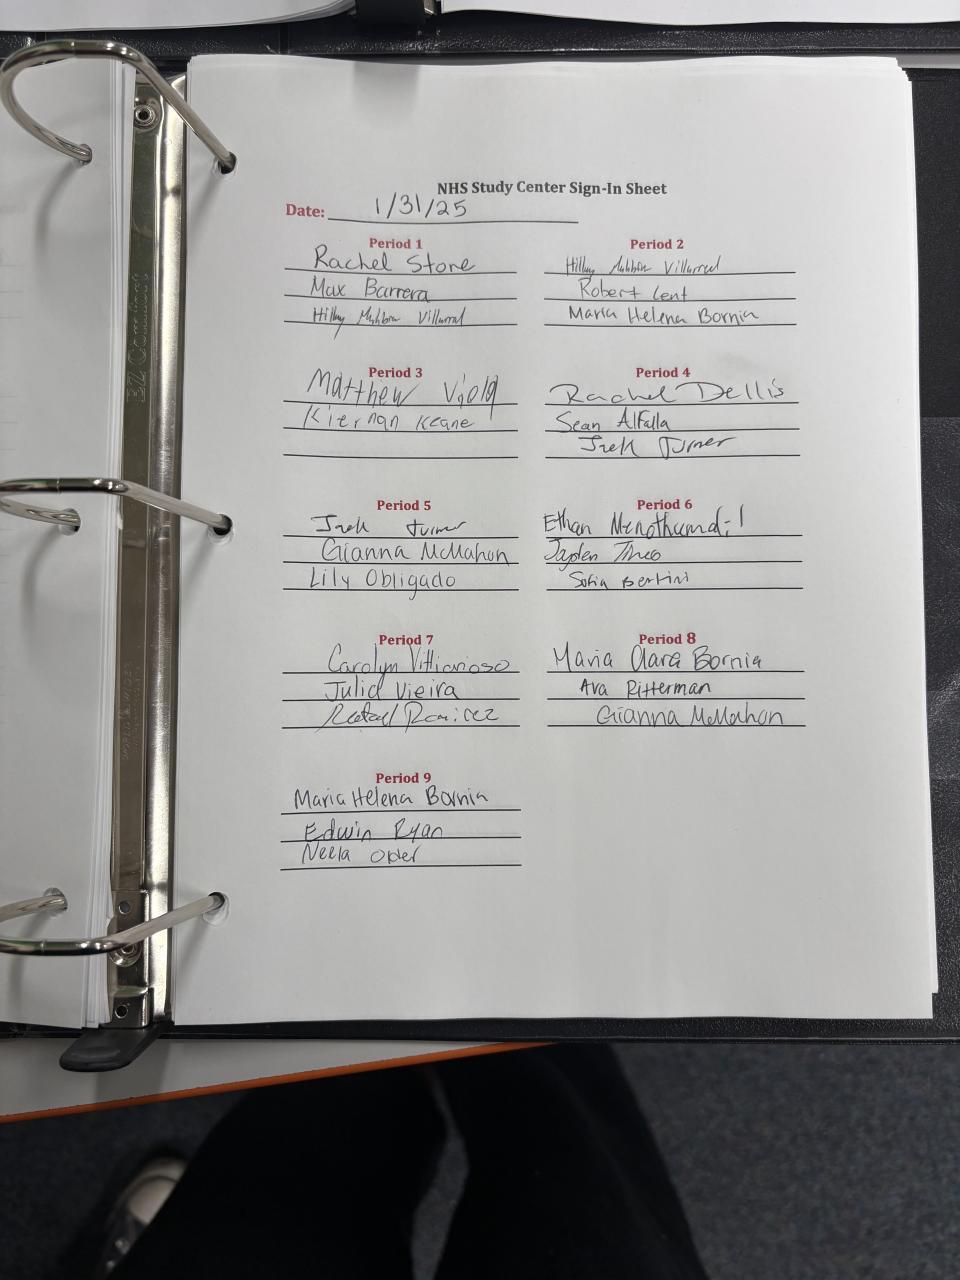 NHS Study Center Sign-In Sheet
Date: 1/31/25
Period 1
Rachel Stone
Max Barrera
Villarreal
Period 2
Villarreal
Robert Lent
Maria Helena Bornia
Period 3
Matthew Viola
Kiernan Keane
Period 4
Rachel Dellis
Sean AlFalla
Turner
Period 5
Turner
Gianna McMahon
Lily Obligado
Period 6
Ethan
Jayden
Sofia Bertini
Period 7
Carolyn
Julia Vieira
Rafael Ramirez
Period 8
Maria Clara Bornia
Ava Ritterman
Gianna McMahon
Period 9
Maria Helena Bornia
Edwin Ryan
Neela